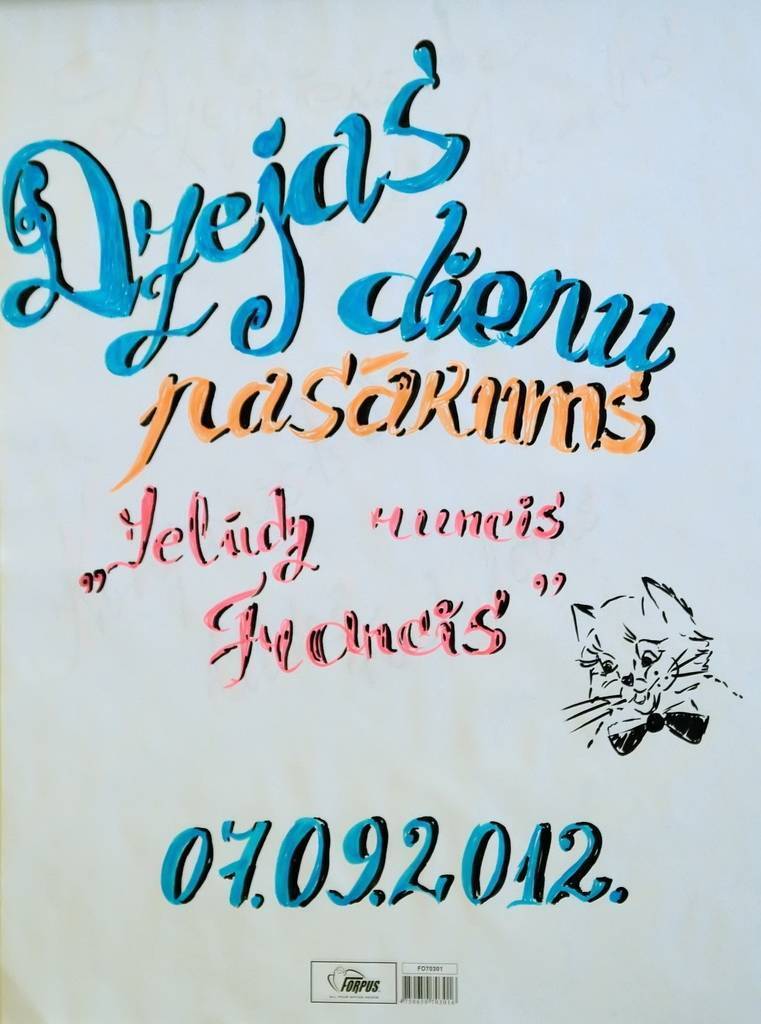 Dzejas
dienu
pasākums
„Ielūdz runcis
Francis”
07.09.2012.
FORPUS
FO70301